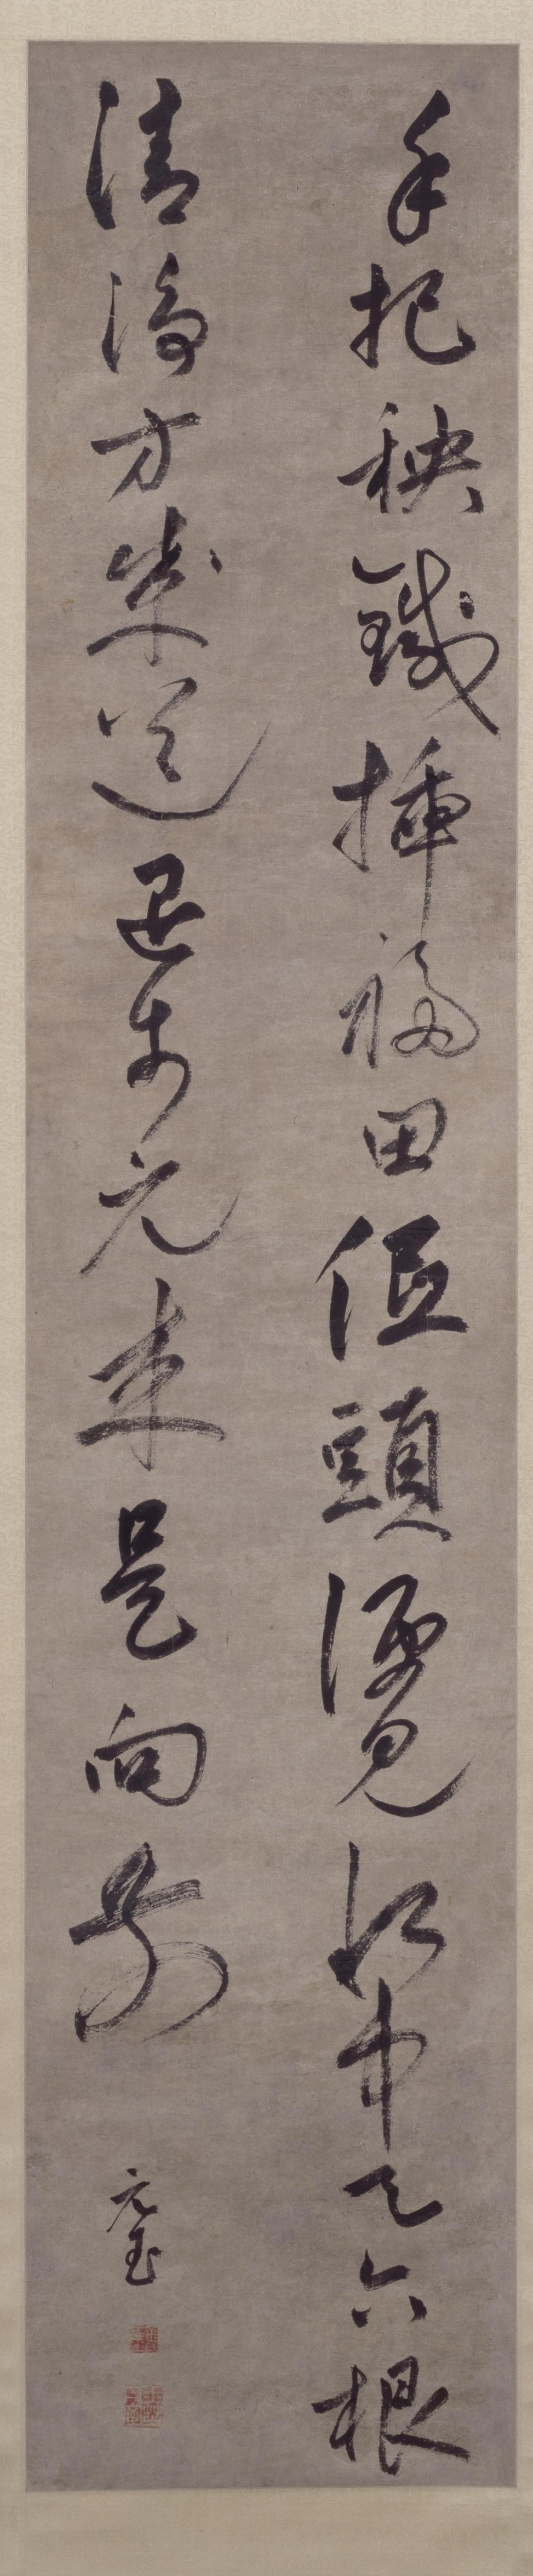 手把秧鍼插福田低頭便見水中天六根
清淨方成道退步元來是向前
元玉